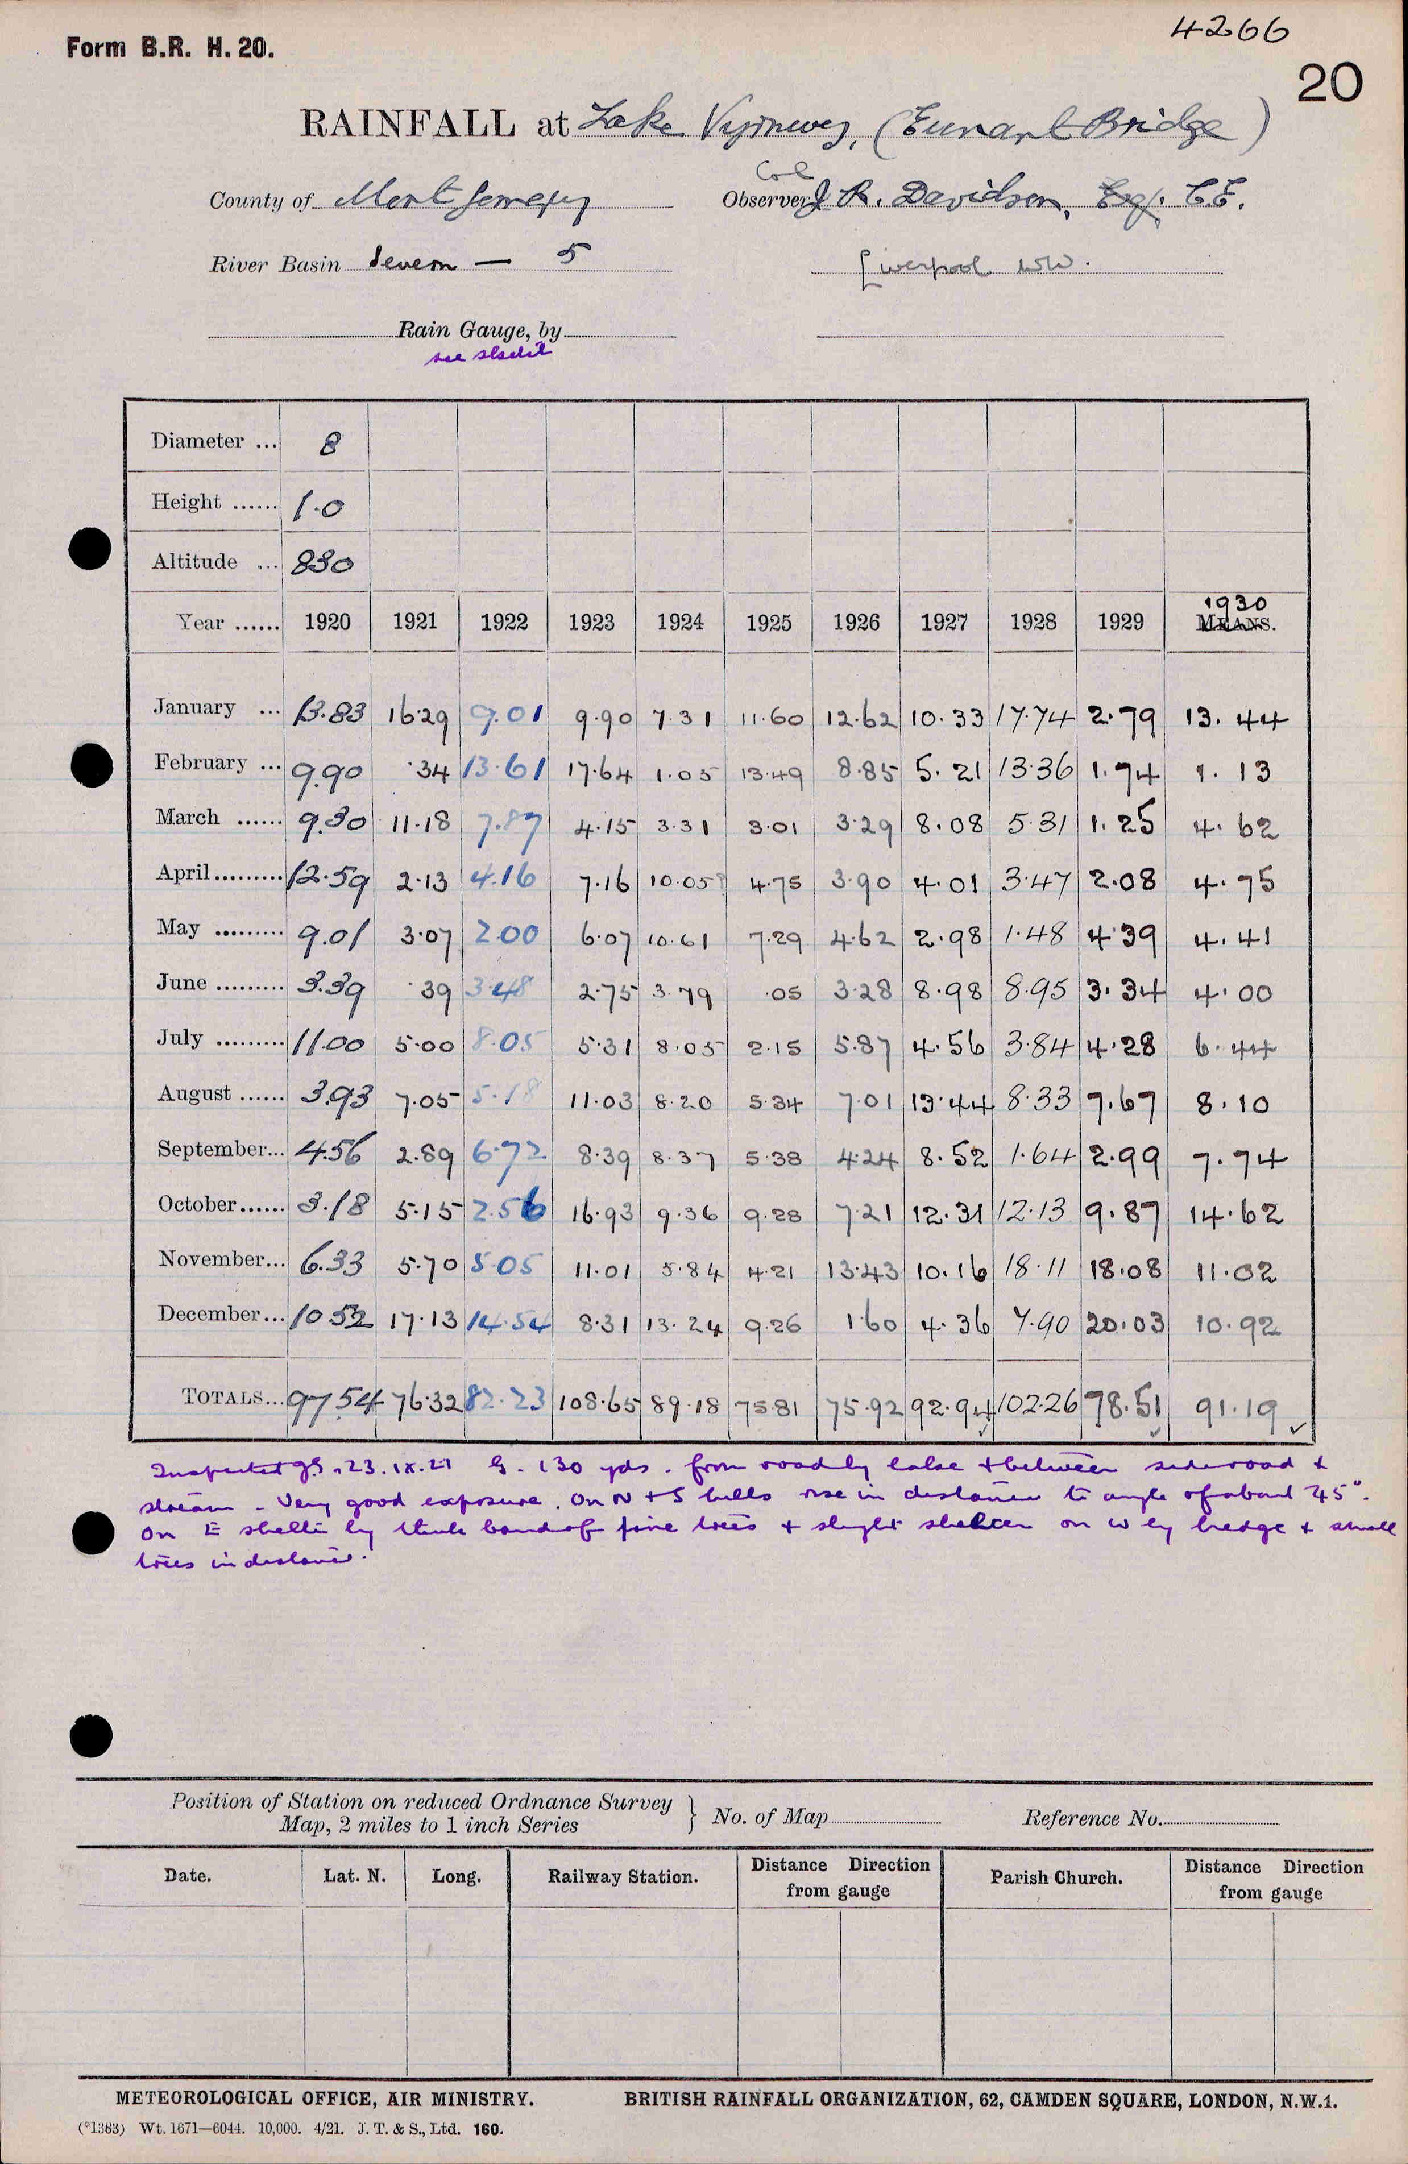 4266
Form B.R. H. 20.
20
RAINFALL at Lake Vyrnwy, (Eunant Bridge)
Col
County of Montgomery Observer J. R. Davidson, Esq. C.E.
River Basin Severn — 5 Liverpool WW.
Rain Gauge, by
see sketch
Diameter ... 8
Height ...... 1.0
Altitude ... 830
1930
Year ...... 1920 1921 1922 1923 1924 1925 1926 1927 1928 1929 MEANS.
January ... 13.83 16.29 9.01 9.90 7.31 11.60 12.62 10.33 17.74 2.79 13.44
February ... 9.90 .34 13.61 17.64 1.05 13.49 8.85 5.21 13.36 1.74 1.13
March ...... 9.30 11.18 7.87 4.15 3.31 3.01 3.29 8.08 5.31 1.25 4.62
April......... 12.59 2.13 4.16 7.16 10.05 4.75 3.90 4.01 3.47 2.08 4.75
May ......... 9.01 3.07 2.00 6.07 10.61 7.29 4.62 2.98 1.48 4.39 4.41
June ......... 3.39 .39 3.48 2.75 3.79 .05 3.28 8.98 8.95 3.34 4.00
July ......... 11.00 5.00 8.05 5.31 8.05 2.15 5.87 4.56 3.84 4.28 6.44
August ...... 3.93 7.05 5.18 11.03 8.20 5.34 7.01 13.44 8.33 7.67 8.10
September... 4.56 2.89 6.72 8.39 8.37 5.38 4.24 8.52 1.64 2.99 7.74
October...... 3.18 5.15 2.56 16.93 9.36 9.28 7.21 12.31 12.13 9.87 14.62
November... 6.33 5.70 5.05 11.01 5.84 4.21 13.43 10.16 18.11 18.08 11.02
December... 10.52 17.13 14.54 8.31 13.24 9.26 1.60 4.36 7.90 20.03 10.92
TOTALS... 97.54 76.32 82.23 108.65 89.18 75.81 75.92 92.94 102.26 78.51 91.19
Inspected 23.IX.21 G. 130 yds. from road by lake + between side road +
stream - Very good exposure. On N + S hills rise in distance to angle of about 45°.
On E shelter by thick band of pine trees + slight shelter on W by hedge + small
trees in distance.
Position of Station on reduced Ordnance Survey
Map, 2 miles to 1 inch Series } No. of Map Reference No.
Date. Lat. N. Long. Railway Station. Distance Direction from gauge Parish Church. Distance Direction from gauge
METEOROLOGICAL OFFICE, AIR MINISTRY. BRITISH RAINFALL ORGANIZATION, 62, CAMDEN SQUARE, LONDON, N.W.1.
(*1383) Wt. 1671—6044. 10,000. 4/21. J. T. & S., Ltd. 160.